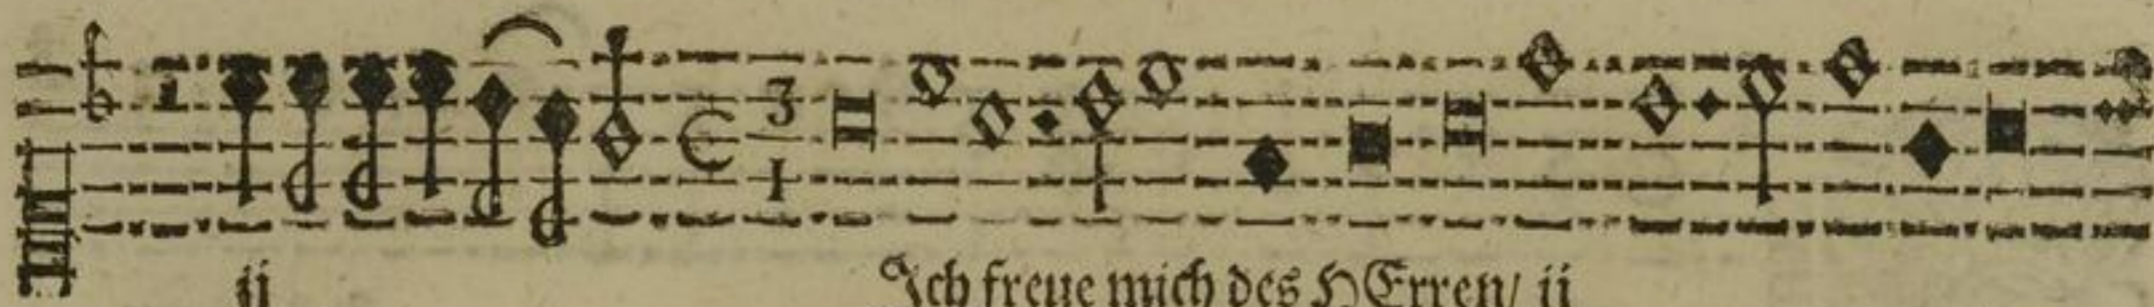 3
1
ij Ich freue mich des HErren/ ij